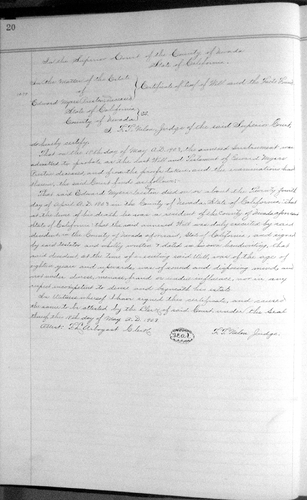 20
In the Superior Court of the County of Nevada
State of California.
In the Matter of the Estate
of
Edward Myers Preston Deceased
State of California
County of Nevada } SS.
Certificate of Proof of Will and the Facts Found
I, F. T. Nilon, Judge of the said Superior Court,
do hereby certify:
That on the 18th day of May A.D. 1903, the annexed Instrument was
admitted to probate as the last Will and Testament of Edward Myers
Preston deceased, and from the proofs taken and the examination had
therein, the said Court finds as follows:
That said Edward Myers Preston died on or about the Twenty fourth
day of April A.D. 1903 in the County of Nevada, State of California. That
at the time of his death he was a resident of the County of Nevada
State of California. That the said annexed Will was duly executed by said
decedent in the County of Nevada aforesaid, State of California and signed
by said testator and wholly written & dated in his own handwriting, that
said decedent at the time of executing said Will, was of the age of
eighteen years and upwards, was of sound and disposing mind, and
not under duress, menace, fraud or undue influence, nor in any
respect incompetent to devise and bequeath his estate.
In Witness whereof I have signed this certificate, and caused
the same to be attested by the Clerk of said Court under the Seal
thereof this 18th day of May A.D. 1903
Attest: Clerk
SEAL
F. T. Nilon Judge.